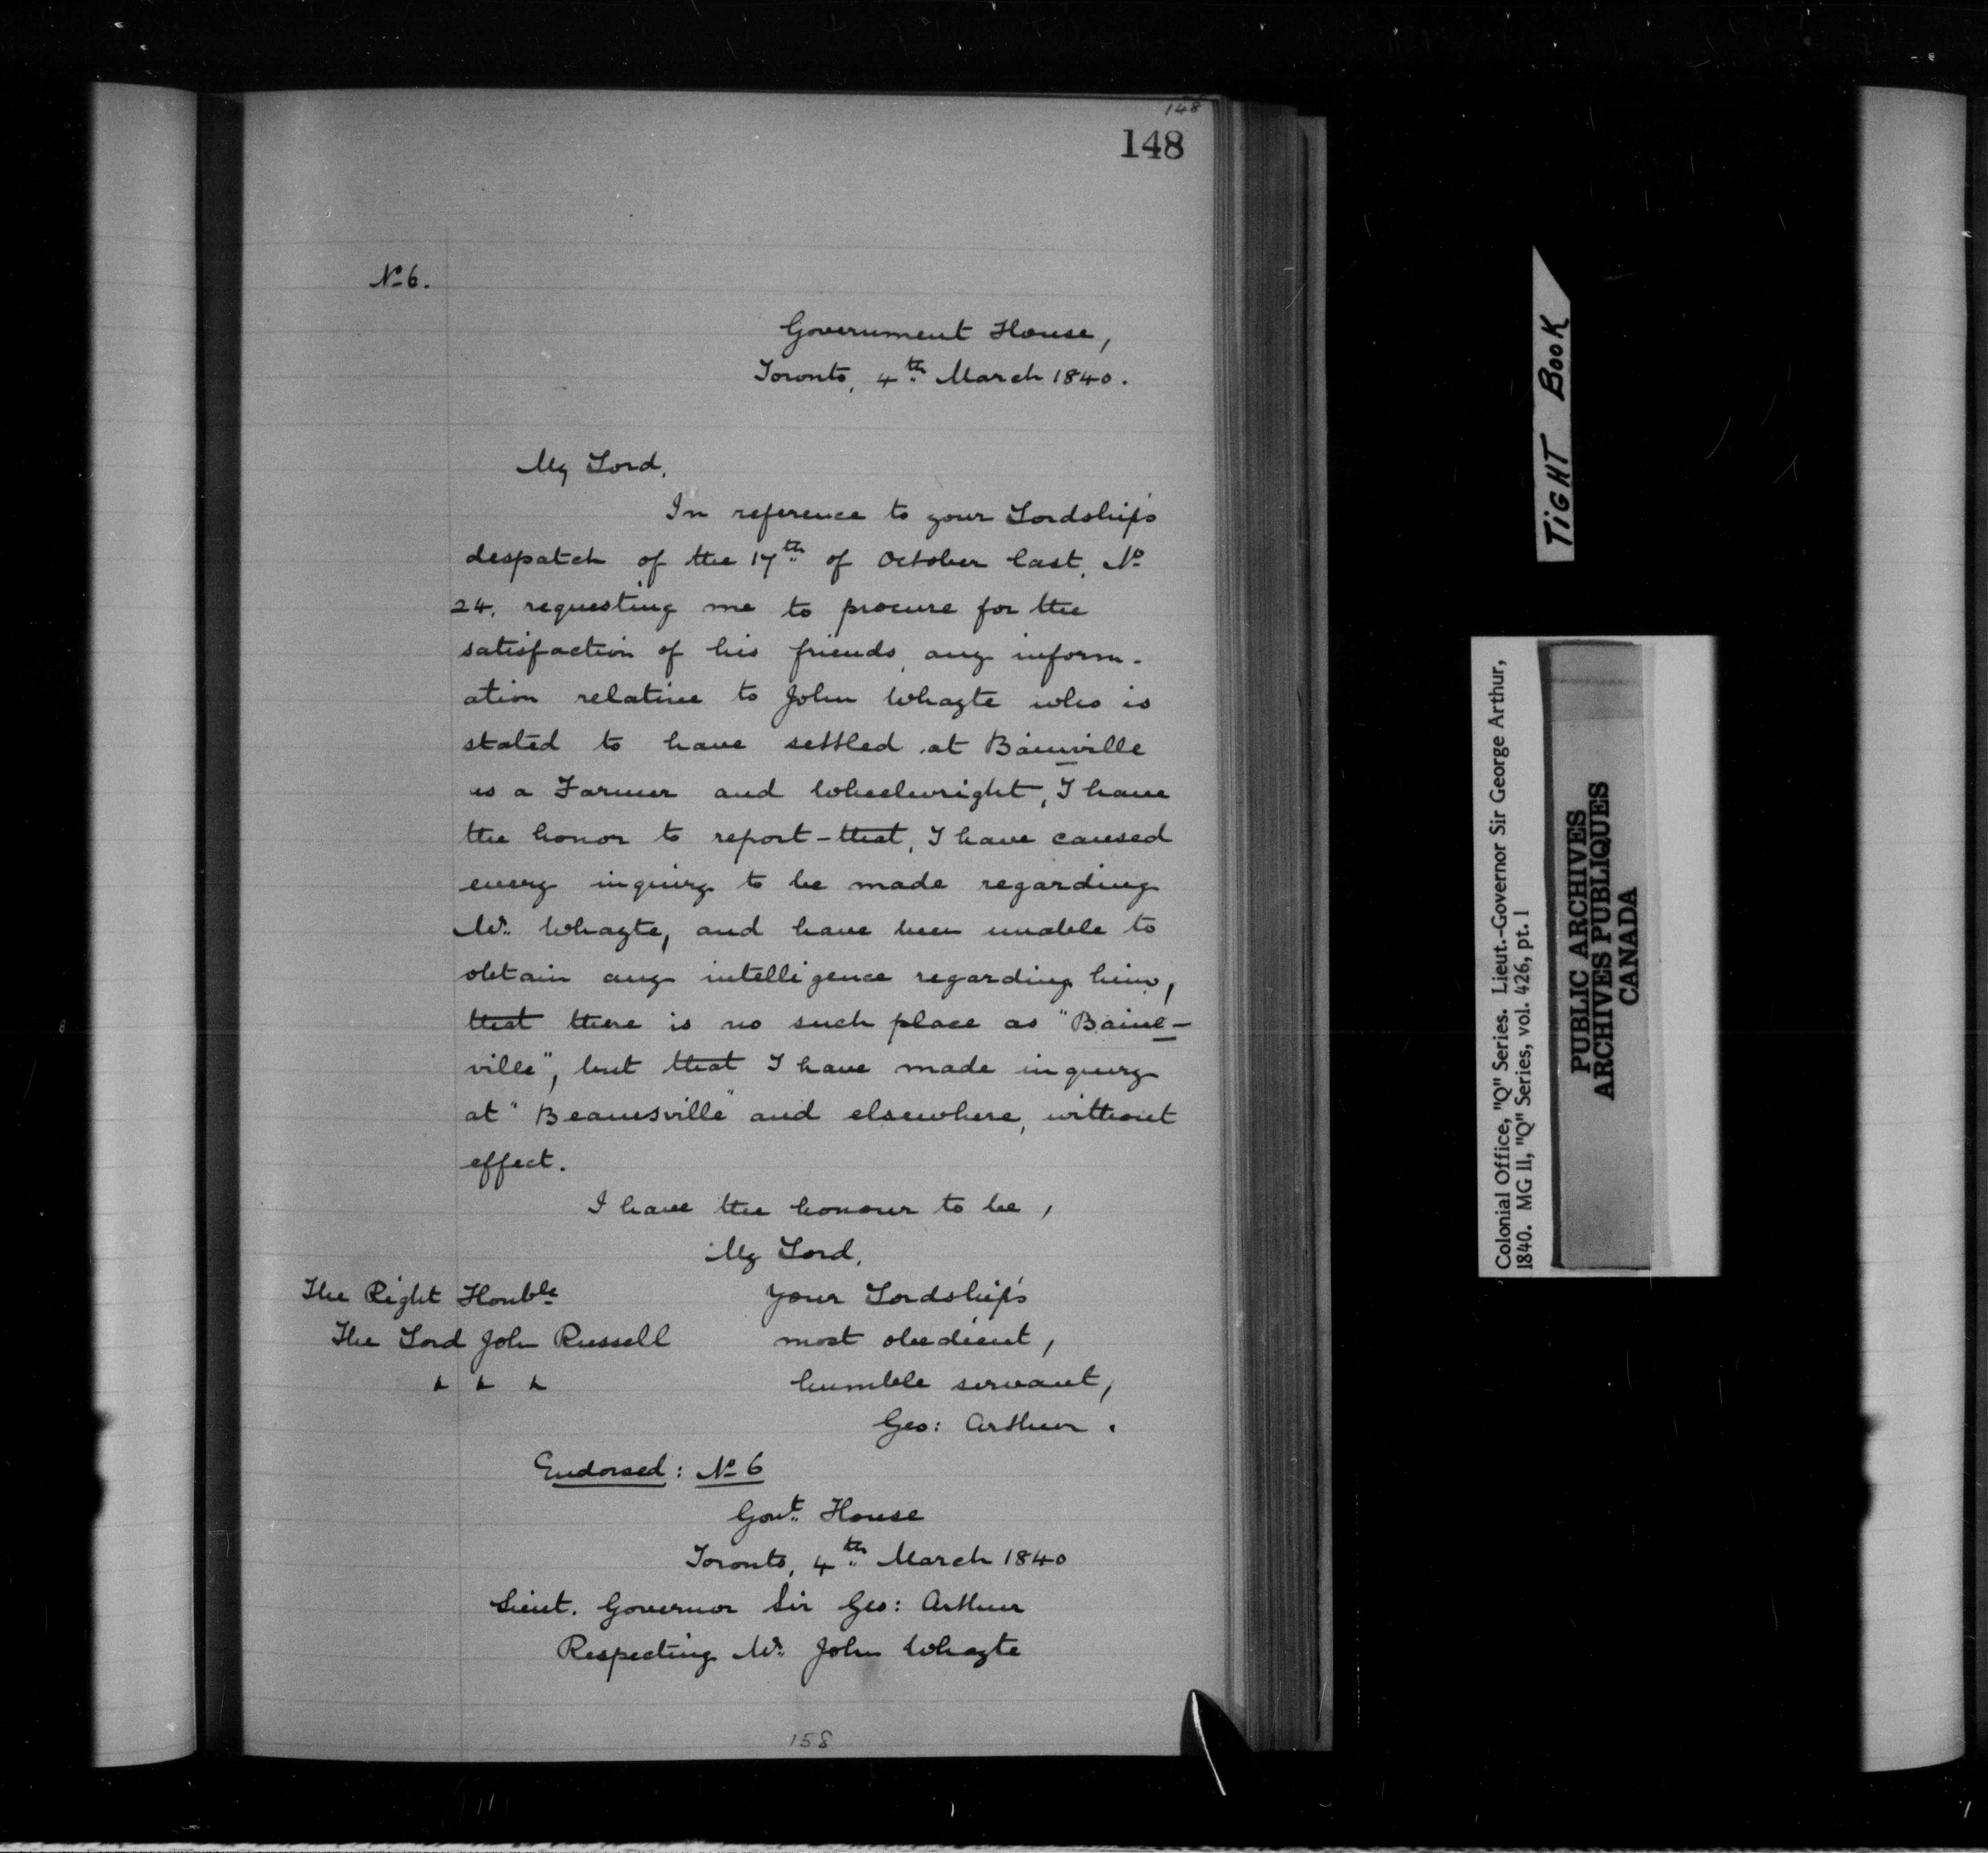 148
148
No 6.
Government House,
Toronto, 4th March 1840.
My Lord,
In reference to your Lordship's
despatch of the 17th of October last, No
24, requesting me to procure for the
satisfaction of his friends, any inform-
ation relative to John Whayte who is
stated to have settled at Bainville
as a Farmer and Wheelwright, I have
the honor to report - that, I have caused
every inquiry to be made regarding
Mr. Whayte, and have been unable to
obtain any intelligence regarding him,
that there is no such place as "Baine-
ville", but that I have made inquiry
at "Beamsville" and elsewhere, without
effect.
I have the honour to be,
My Lord,
The Right Honble
your Lordship's
The Lord John Russell
most obedient,
humble servant,
Geo: Arthur.
Endorsed: No 6
Govt. House
Toronto, 4th March 1840
Lieut. Governor Sir Geo: Arthur
Respecting Mr. John Whayte
158
TIGHT BOOK
Colonial Office, "Q" Series. Lieut.-Governor Sir George Arthur,
1840. MG 11, "Q" Series, vol. 426, pt. 1
PUBLIC ARCHIVES
ARCHIVES PUBLIQUES
CANADA